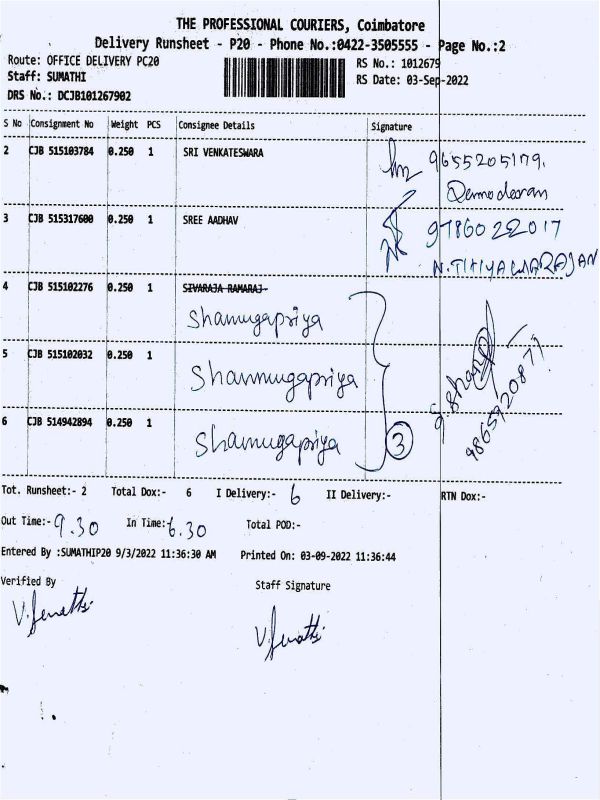 THE PROFESSIONAL COURIERS, Coimbatore
Delivery Runsheet - P20 - Phone No.:0422-3505555 - Page No.:2
Route: OFFICE DELIVERY PC20 RS No.: 1012679
Staff: SUMATHI RS Date: 03-Sep-2022
DRS No.: DCJB101267902
S No Consignment No Weight PCS Consignee Details Signature
2 CJB 515103784 0.250 1 SRI VENKATESWARA 9655205179.
3 CJB 515317600 0.250 1 SREE AADHAV 9786022017
4 CJB 515102276 0.250 1 SIVARAJA RAMARAJ
Shamugapriya
5 CJB 515102032 0.250 1
Shanmugapriya
6 CJB 514942894 0.250 1
Shamugapriya 3
Tot. Runsheet:- 2 Total Dox:- 6 I Delivery:- 6 II Delivery:- RTN Dox:-
Out Time:- 9.30 In Time:- 6.30 Total POD:-
Entered By :SUMATHIP20 9/3/2022 11:36:30 AM Printed On: 03-09-2022 11:36:44
Verified By Staff Signature